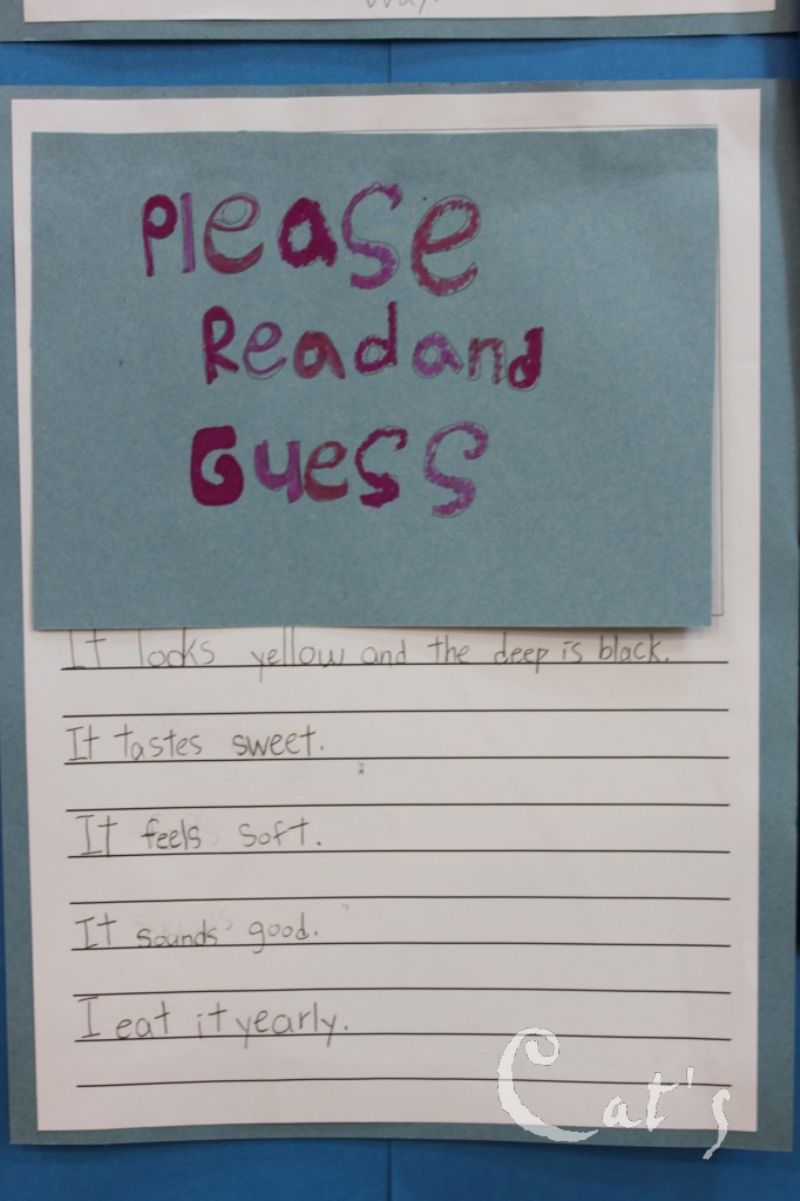 way.
Please
Read and
Guess
It looks yellow and the deep is black.
It tastes sweet.
It feels soft.
It sounds good.
I eat it yearly.
Cat's